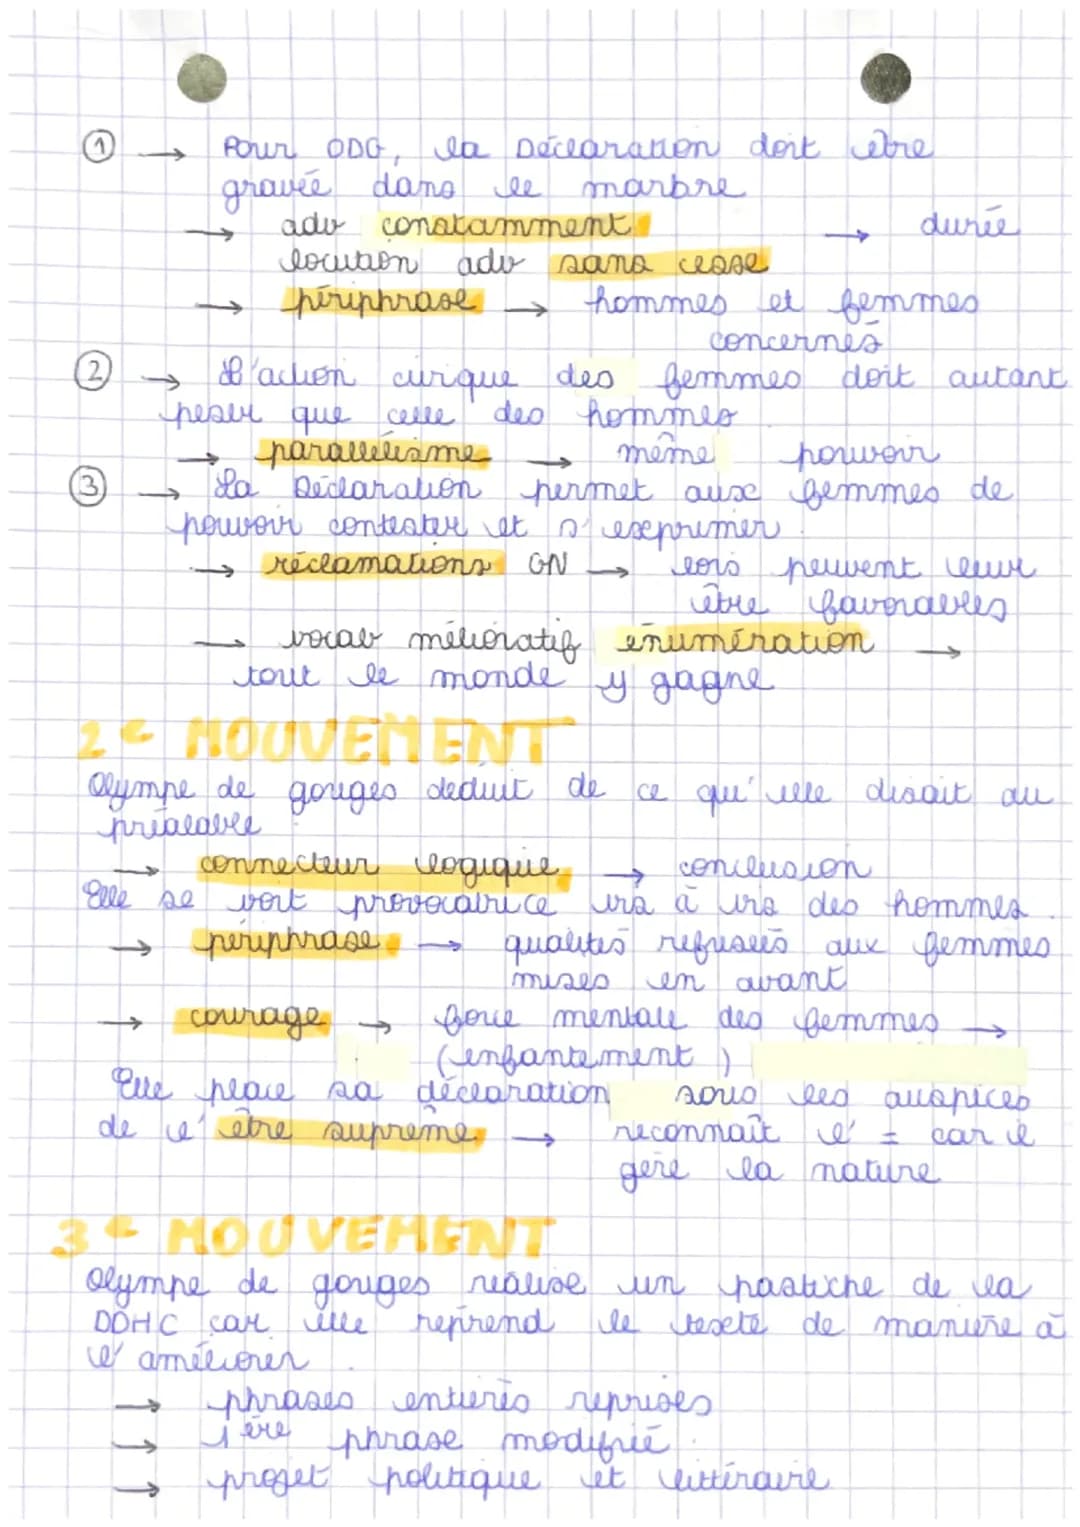 ① → Pour ODG, la Déclaration doit être
gravée dans le marbre
→ adv constamment → durée
locution adv sans cesse
→ périphrase → hommes et femmes
concernés
② → L'action civique des femmes doit autant
peser que celle des hommes
→ parallélisme → même pouvoir
③ → La Déclaration permet aux femmes de
pouvoir contester et s'exprimer.
→ réclamations GN → lois peuvent leur
être favorables
→ vocab mélioratif énumération →
tout le monde y gagne
2e MOUVEMENT
Olympe de gouges déduit de ce qu'elle disait au
préalable.
→ connecteur logique → conclusion
Elle se voit provocatrice vis à vis des hommes.
→ périphrase → qualités refusées aux femmes
mises en avant
→ courage → force mentale des femmes →
(enfantement)
Elle place sa déclaration sous les auspices
de l'être suprême → reconnaît l' = car il
gère la nature
3e MOUVEMENT
Olympe de gouges réalise un pastiche de la
DDHC car elle reprend le texte de manière à
l'améliorer.
→ phrases entières reprises
→ 1ère phrase modifiée
→ projet politique et littéraire